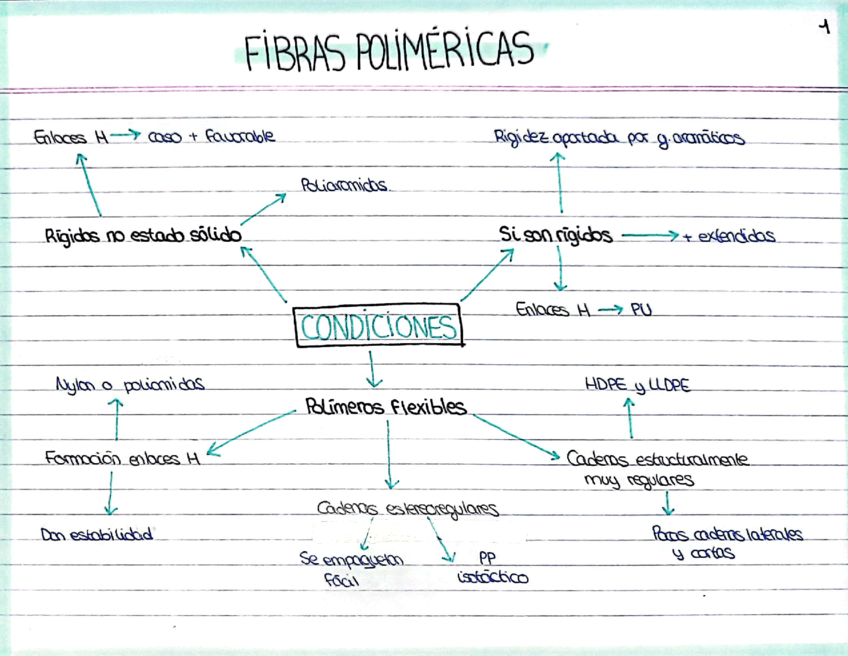 1
FIBRAS POLIMÉRICAS
Enlaces H → caso + favorable
Rigidez aportada por g. aromáticos
Poliaramidas
Rígidos no estado sólido
Si son rígidos → + extendidos
Enlaces H → PU
CONDICIONES
Nylon o poliamidas
HDPE y LLDPE
Polímeros flexibles
Formación enlaces H
Cadenas estructuralmente
muy regulares
Cadenas estereoregulares
Dan estabilidad
Pocas cadenas laterales
y cortas
Se empaquetan
fácil
PP
isotáctico